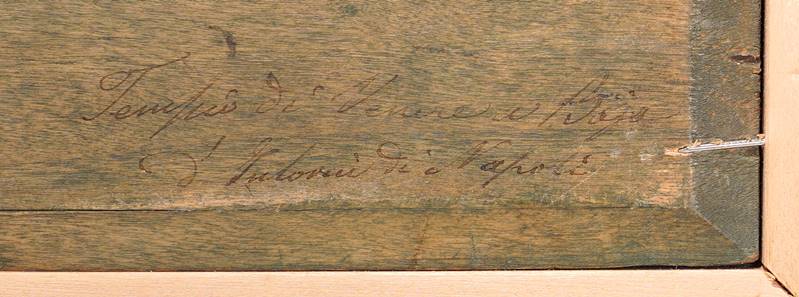 Tempio di Venere a Baja
d' Intorni di Napoli